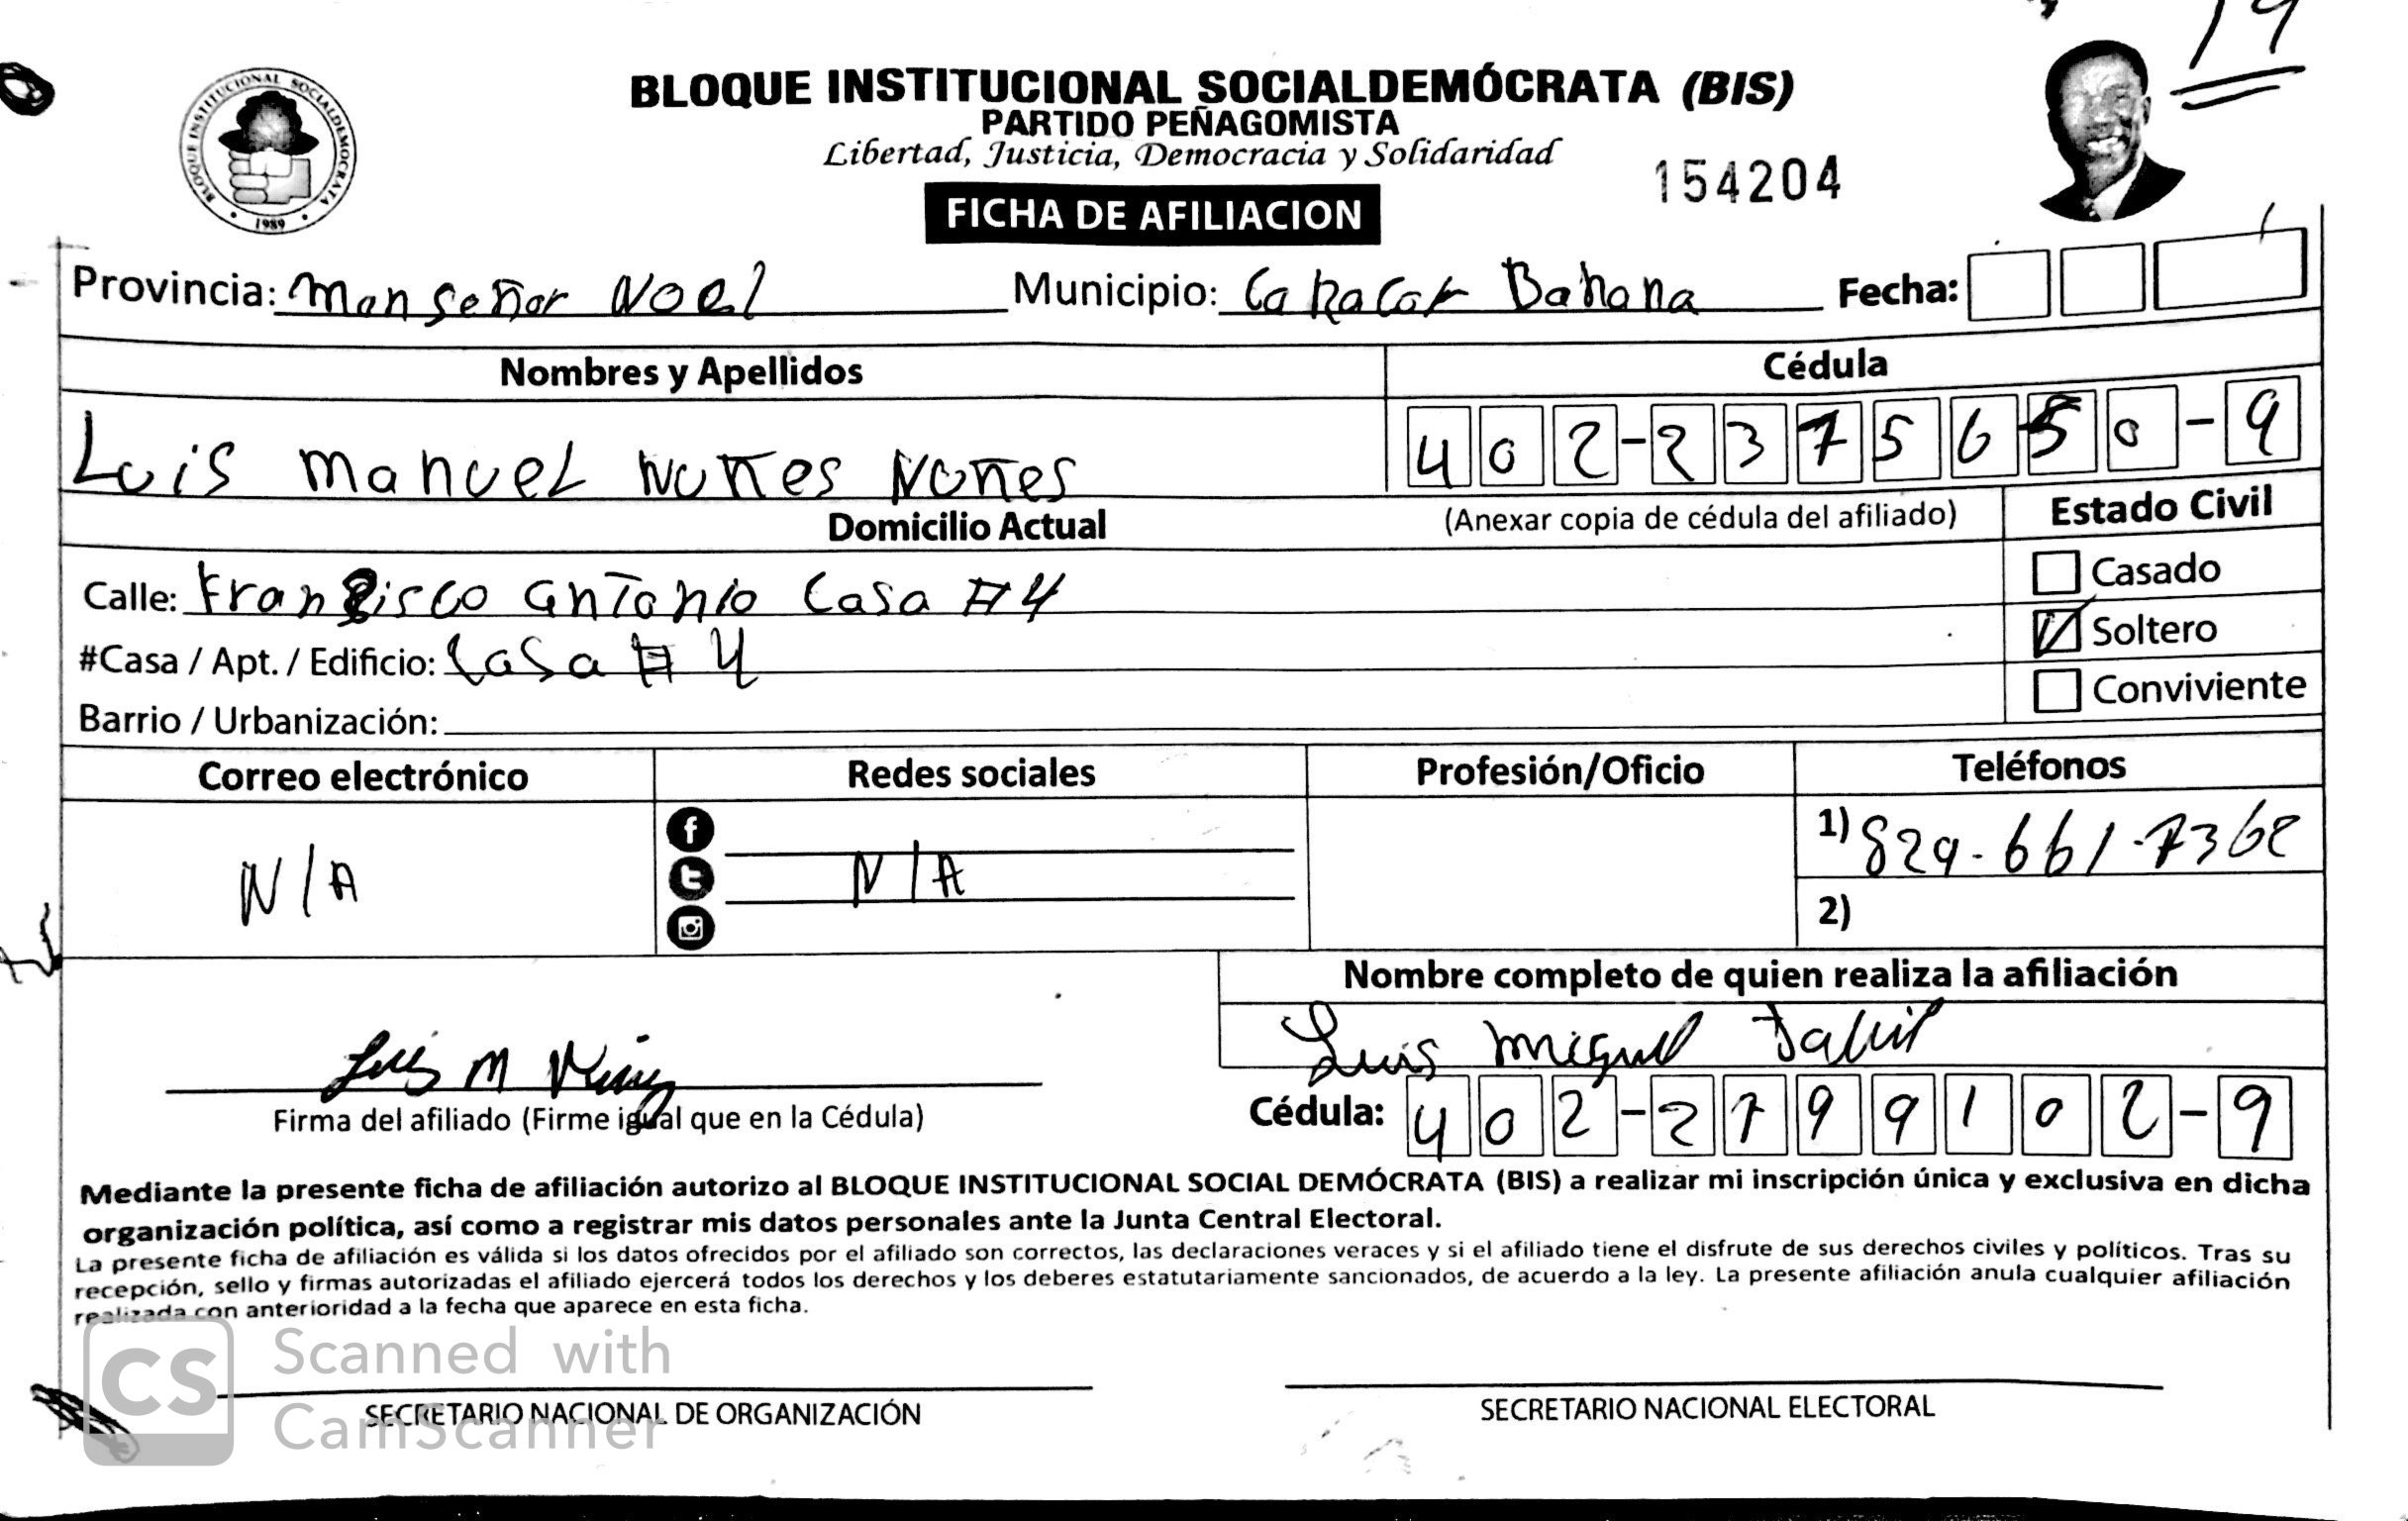 19
BLOQUE INSTITUCIONAL SOCIALDEMÓCRATA (BIS)
PARTIDO PEÑAGOMISTA
Libertad, Justicia, Democracia y Solidaridad
BLOQUE INSTITUCIONAL SOCIALDEMOCRATA
1989
154204
FICHA DE AFILIACION
Provincia: Monseñor Noel Municipio: Fecha:
Nombres y Apellidos Cédula
Luis Manuel Nuñes Nuñes 402-2375650-9
Domicilio Actual (Anexar copia de cédula del afiliado) Estado Civil
Calle: Francisco Antonio Casa #4 Casado
#Casa / Apt. / Edificio: Casa # 4 Soltero
Barrio / Urbanización: Conviviente
Correo electrónico Redes sociales Profesión/Oficio Teléfonos
N/A N/A 1) 829-661-7362
2)
Nombre completo de quien realiza la afiliación
Luis Miguel
Luis M
Firma del afiliado (Firme igual que en la Cédula) Cédula: 402-2799102-9
Mediante la presente ficha de afiliación autorizo al BLOQUE INSTITUCIONAL SOCIAL DEMÓCRATA (BIS) a realizar mi inscripción única y exclusiva en dicha
organización política, así como a registrar mis datos personales ante la Junta Central Electoral.
La presente ficha de afiliación es válida si los datos ofrecidos por el afiliado son correctos, las declaraciones veraces y si el afiliado tiene el disfrute de sus derechos civiles y políticos. Tras su
recepción, sello y firmas autorizadas el afiliado ejercerá todos los derechos y los deberes estatutariamente sancionados, de acuerdo a la ley. La presente afiliación anula cualquier afiliación
realizada con anterioridad a la fecha que aparece en esta ficha.
CS Scanned with
CamScanner
SECRETARIO NACIONAL DE ORGANIZACIÓN SECRETARIO NACIONAL ELECTORAL